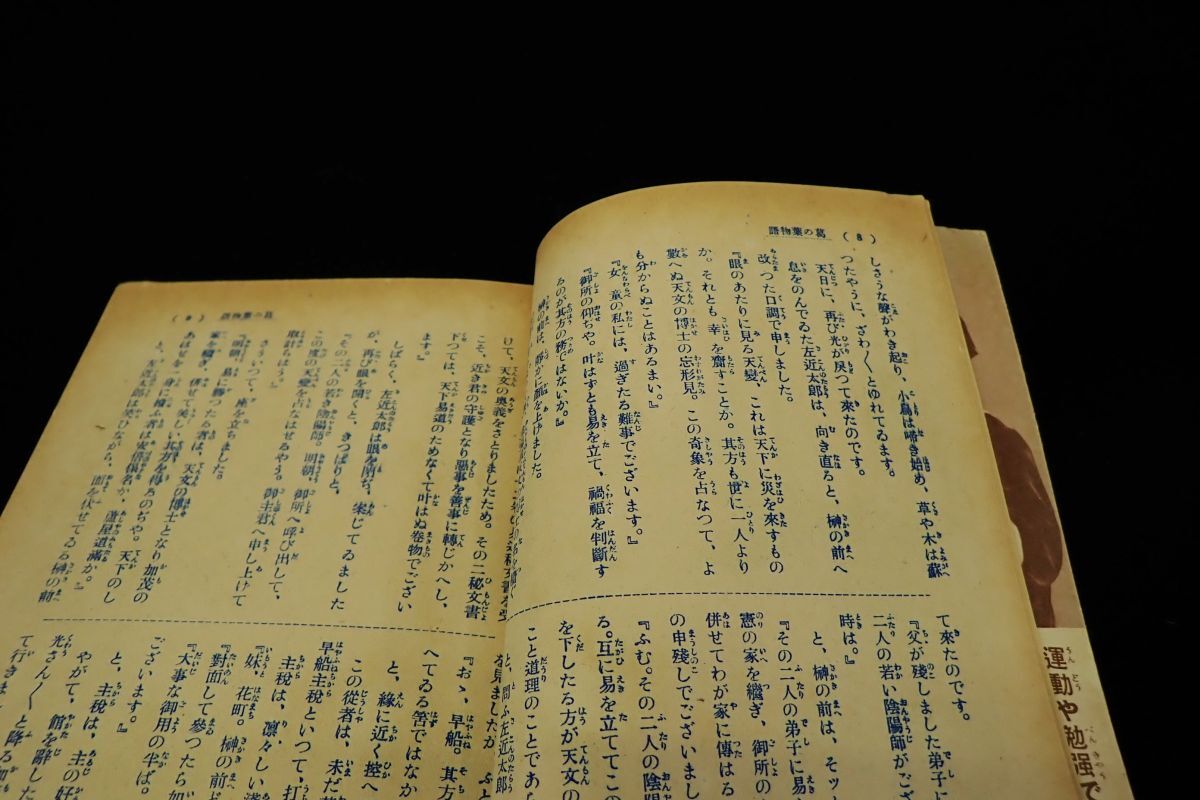 (8) 葛の葉物語
しさうな聲がわき起り、小鳥は啼き始め、草や木は蘇
つたやうに、ざわ〱とゆれてゐます。
天日に、再び光が戻つて來たのです。
息をのんでゐた左近太郎は、向き直ると、榊の前へ
改つた口調で申しました。
『眼のあたりに見る天變、これは天下に災を來すもの
か。それとも幸を齎すことか。其方も世に一人より
數へぬ天文の博士の忘形見。この奇象を占なつて、よ
も分からぬことはあるまい。』
『女童の私には、過ぎたる難事でございます。』
『御所の仰ぢや。叶はずとも易を立て、禍福を判斷す
るのが其方の務ではないか。』
榊の前は、靜かに顏を上げました。
て來たのです。
『父が殘しました弟子に
二人の若い陰陽師がござ
時は。』
と、榊の前は、ソッ
『その二人の弟子に易
憲の家を繼ぎ、御所の
併せてわが家に傳は
の申殘しでございまし
『ふむ。その二人の陰
る。互に易を立ててこの
を下したる方が天文の
こと道理のことであら
と、問ふ左近太郎
(9) 葛の葉物語
けて、天文の奧義をさとりましたため。その二秘文書
こそ、近き君の守護となり惡事を善事に轉じかへし、
下つては、天下易道のためなくて叶はぬ卷物でござい
ます。』
しばらく、左近太郎は眼を閉ぢ、案じてゐました
が、再び眼を開くと、きつぱりと、
『その二人の若き陰陽師。明朝、御所へ呼び出して、
この度の天變を占なはせるやう。御主君へ申し上げて
取計らはう。』
さういつて、座を立ちました。
『明朝の易に勝つた者は、天文の博士となり加茂の
家を繼ぎ、併せて美しい其方を得るのぢや。天下のし
あはせを一身に擔ふ者は安倍保名か、蘆屋道滿か。』
と、左近太郎は笑ひながら、面を伏せてゐる榊の前
『おゝ、早船。其方
へてゐる筈ではなか
と、緣に近く控へ
この從者は、未だ若
早船主稅といつて、打
主稅は、凛々しい淺
『妹、花町。榊の前ど
『對面して參つたら加
『大事な御用の半ば。
ございます。』
と、主稅は、主の好
やがて、館を辭した
光さん〱と降る加
て行きま
運動や勉强で